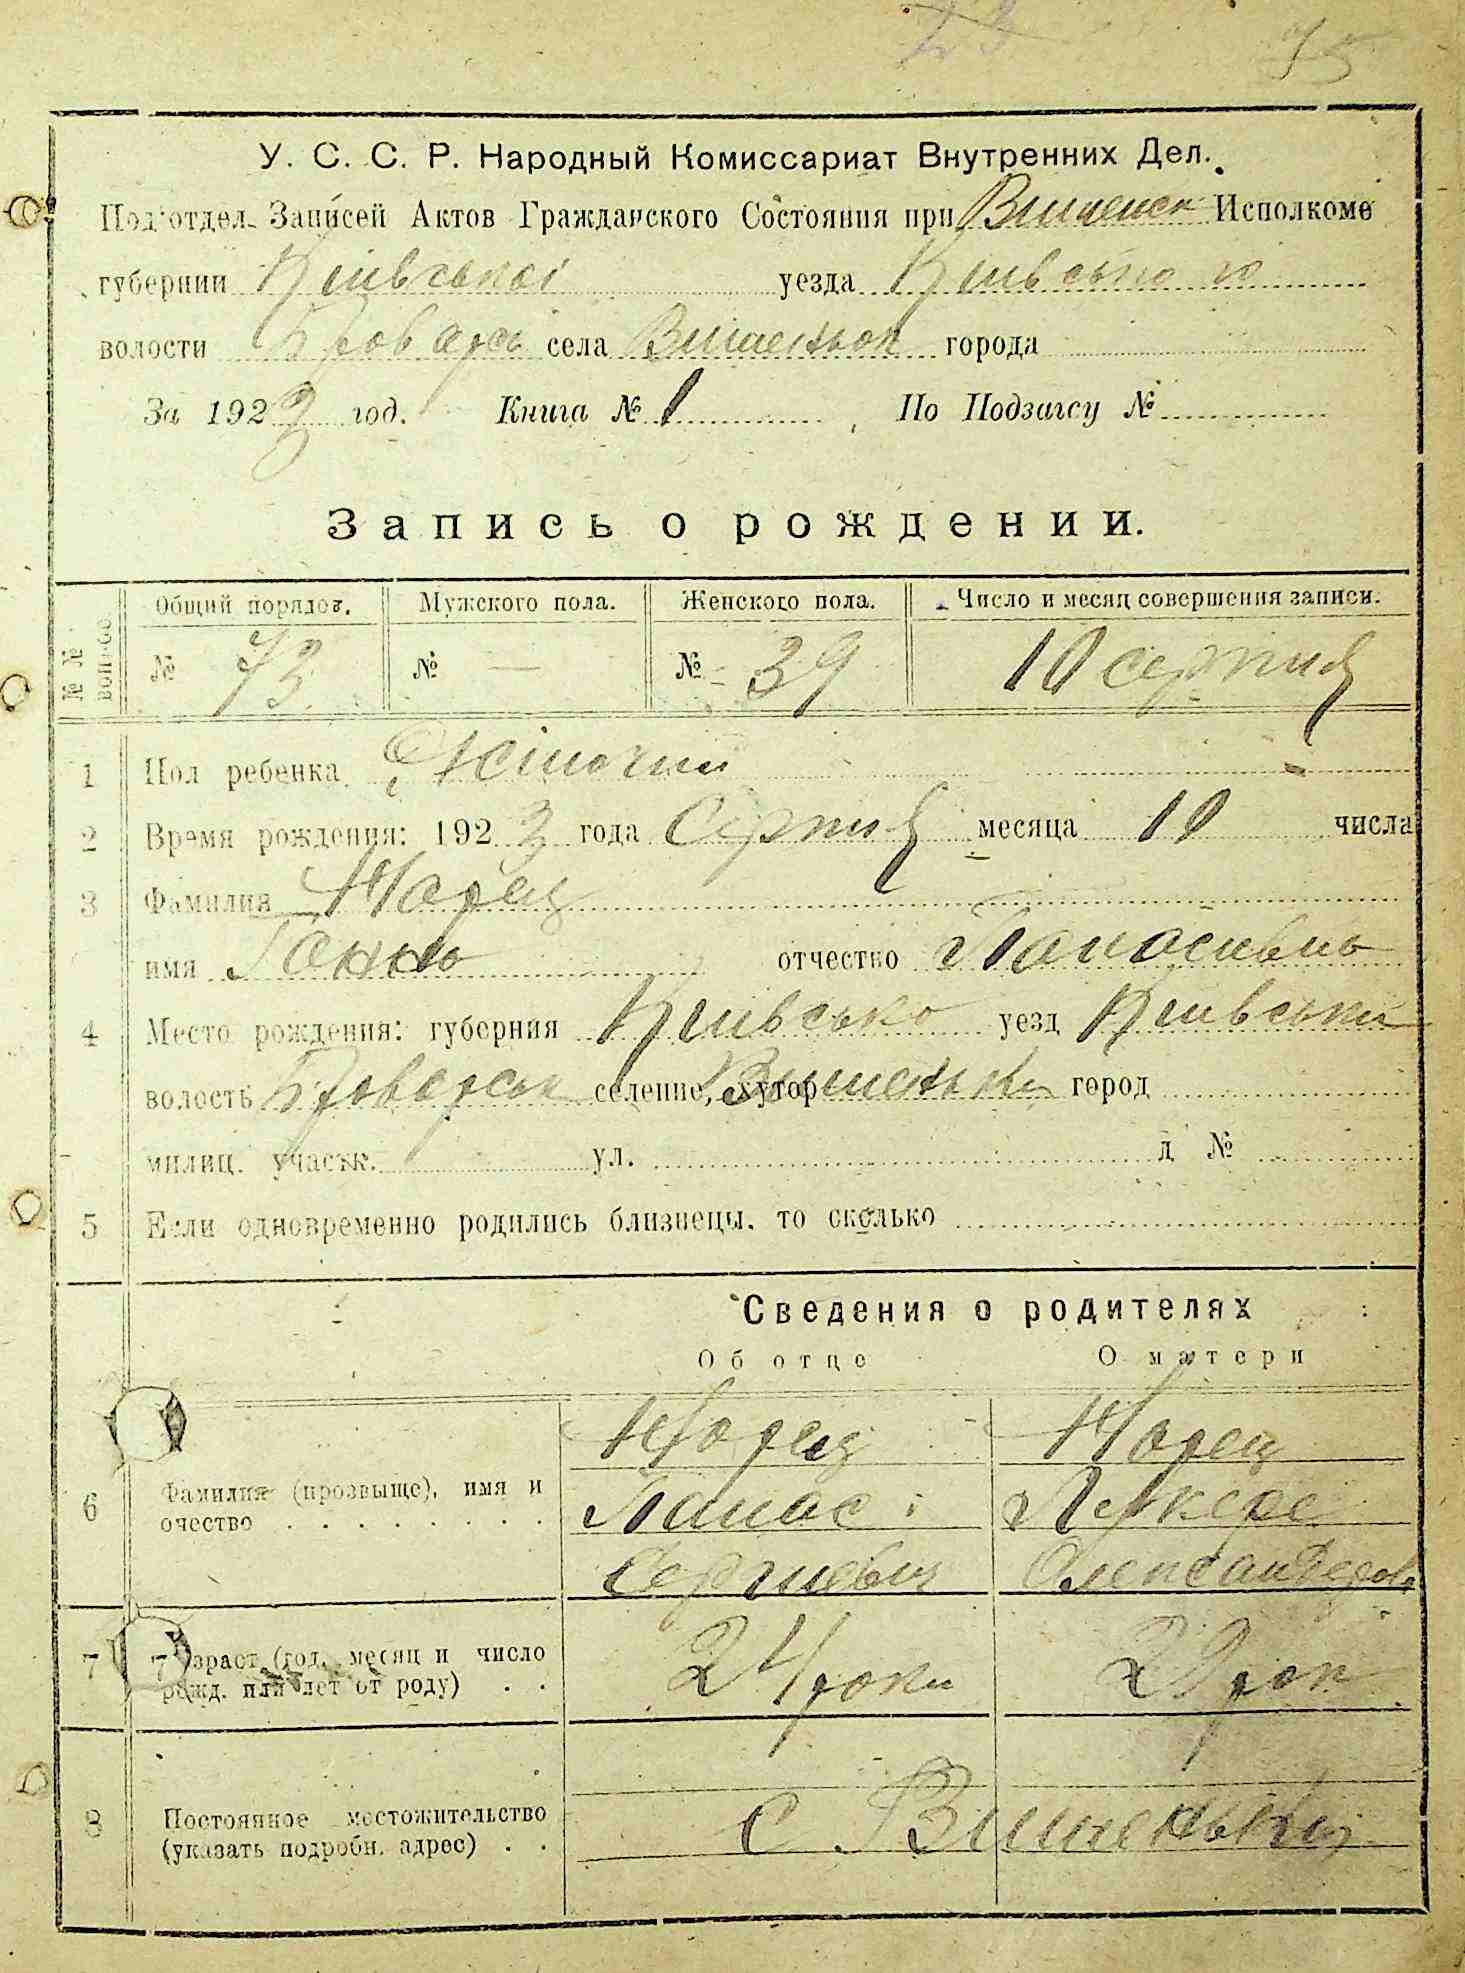 75
У. С. С. Р. Народный Комиссариат Внутренних Дел.
Под'отдел Записей Актов Гражданского Состояния при Вишенськ Исполкоме
губернии Київської уезда Київського
волости Броварсь села Вишеньок города
За 1923 год. Книга № 1 По Подзагсу №
Запись о рождении.
№ № вопросо. Общий порядов. Мужского пола. Женского пола. Число и месяц совершения записи.
№ 73 № — № 39 10 серпня
1 Пол ребенка Жіночий
2 Время рождения: 1923 года Серпня месяца 10 числа
3 Фамилия
имя Ганна отчество Панасивна
4 Место рождения: губерния Київсько уезд Київськи
волость Броварськ селение, хутор Вишеньки город
милиц. участк. ул. д №
5 Если одновременно родились близнецы, то сколько
Сведения о родителях
Об отце О матери
6 Фамилия (прозвыще), имя и очество
Панас
Сергиевич Олександров
7 Возраст (год, месяц и число рожд. или лет от роду) 24 роки 29 рок
8 Постоянное местожительство (указать подробн. адрес) с. Вишеньки